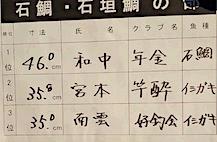 石鯛・石垣鯛の
順位 寸法 氏名 クラブ名 魚種
1位 46.0cm 和中 年金 石鯛
2位 35.8cm 宮本 竿酔 イシガキ
3位 35.0cm 南雲 好釣会 イシガキ